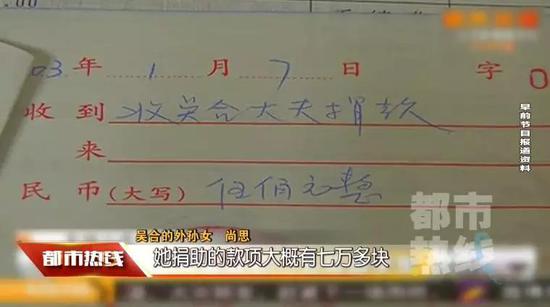 03 年 1 月 7 日 字 0
收 到 收吴合大夫捐款
来
民 币 (大写) 伍佰元整
早前节目报道资料
都市
热线
吴合的外孙女 尚思
都市热线 她捐助的款项大概有七万多块